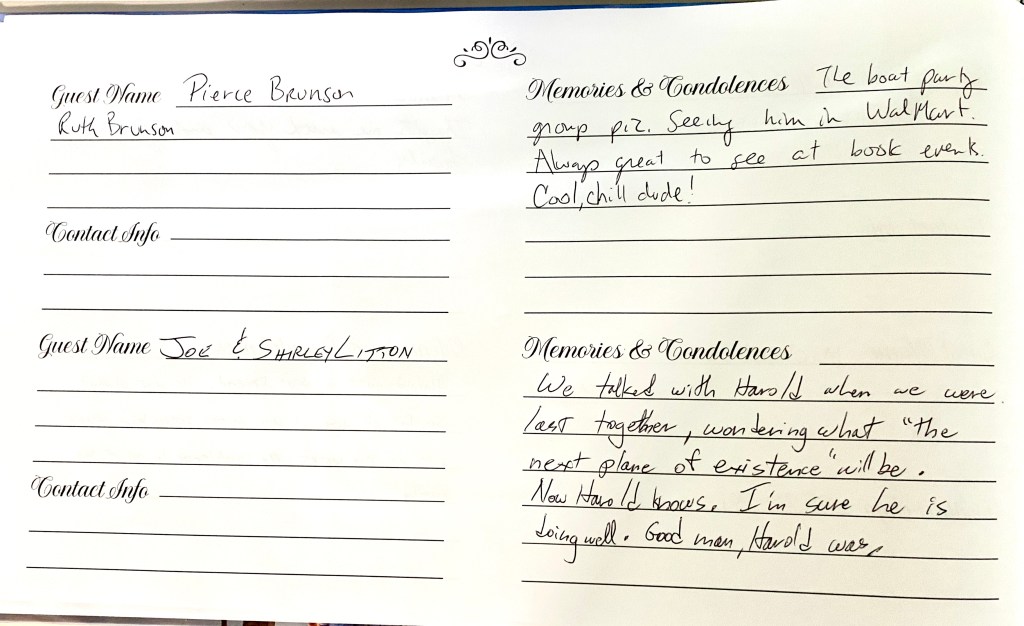 Guest Name Pierce Brunson
Ruth Brunson
Contact Info
Memories & Condolences The boat party
group pic. Seeing him in WalMart.
Always great to see at book events.
Cool, chill dude!
Guest Name JOE & SHIRLEY LITTON
Contact Info
Memories & Condolences
We talked with Harold when we were
last together, wondering what "the
next plane of existence" will be.
Now Harold knows. I'm sure he is
doing well. Good man, Harold was.